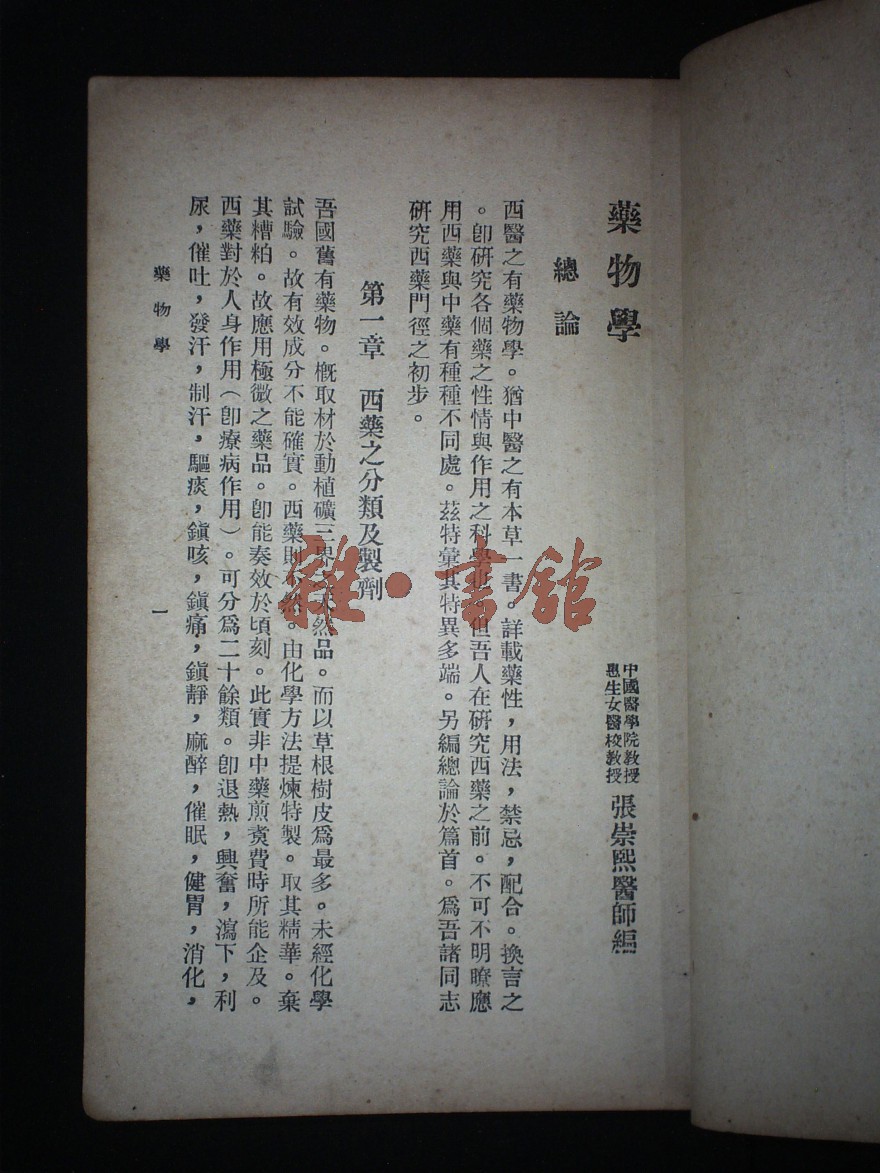 藥物學
中國醫學院教授
惠生女醫校教授
張崇熙醫師編
總論
西醫之有藥物學。猶中醫之有本草一書。詳載藥性，用法，禁忌，配合。換言之
。卽研究各個藥之性情與作用之科學也。但吾人在研究西藥之前。不可不明瞭應
用西藥與中藥有種種不同處。茲特彙其特異多端。另編總論於篇首。爲吾諸同志
研究西藥門徑之初步。
第一章　西藥之分類及製劑
吾國舊有藥物。槪取材於動植礦三界之天然品。而以草根樹皮爲最多。未經化學
試驗。故有效成分不能確實。西藥則不然。由化學方法提煉特製。取其精華。棄
其糟粕。故應用極微之藥品。卽能奏效於頃刻。此實非中藥煎煑費時所能企及。
西藥對於人身作用（卽療病作用）。可分爲二十餘類。卽退熱，興奮，瀉下，利
尿，催吐，發汗，制汗，驅痰，鎭咳，鎭痛，鎭靜，麻醉，催眠，健胃，消化，
藥物學
一
雜·書館